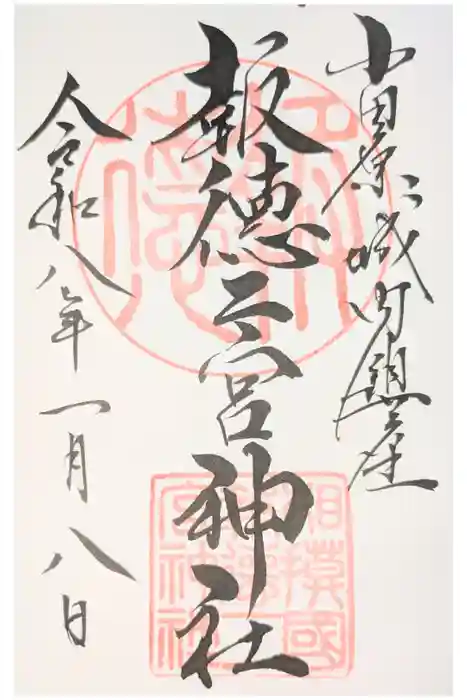 小田原城内鎮座
報徳二宮神社
令和八年一月八日
相模國
報徳二
宮神社
報徳